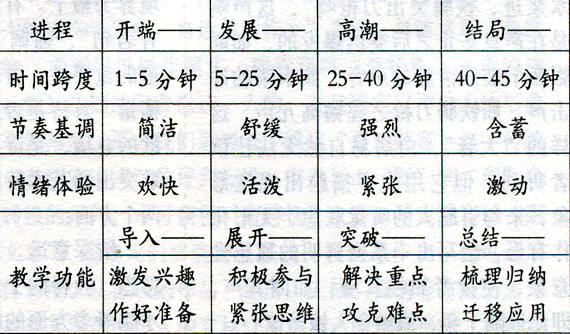 进程 开端—— 发展—— 高潮—— 结局——
时间跨度 1-5分钟 5-25分钟 25-40分钟 40-45分钟
节奏基调 简洁 舒缓 强烈 含蓄
情绪体验 欢快 活泼 紧张 激动
导入—— 展开—— 突破—— 总结——
教学功能 激发兴趣 积极参与 解决重点 梳理归纳
作好准备 紧张思维 攻克难点 迁移应用